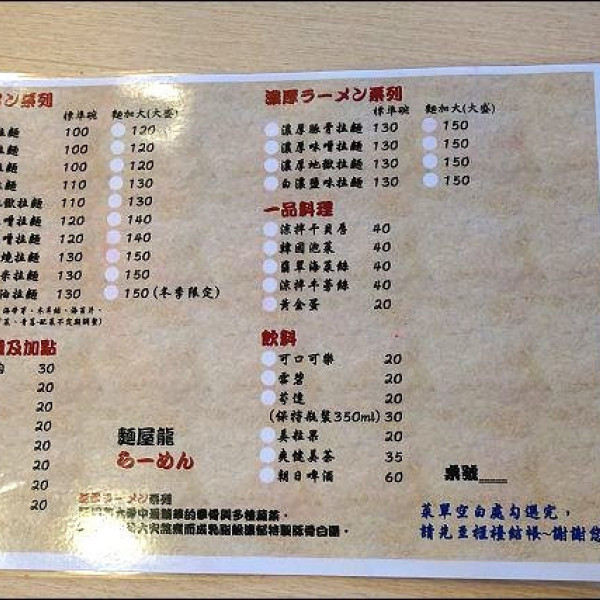 ン系列
標準碗 麵加大(大盛)
拉麵 100 120
拉麵 100 120
拉麵 100 120
拉麵 110 130
獄拉麵 110 130
噌拉麵 120 140
噌拉麵 120 140
燒拉麵 130 150
拉麵 130 150
油拉麵 130 150(冬季限定)
及加點
30
20
20
20
20
20
20
20
濃厚ラーメン系列
標準碗 麵加大(大盛)
濃厚豚骨拉麵 130 150
濃厚味噌拉麵 130 150
濃厚地獄拉麵 130 150
白濃鹽味拉麵 130 150
一品料理
涼拌干貝唇 40
韓國泡菜 40
翡翠海菜絲 40
涼拌牛蒡絲 40
黃金蛋 20
飲料
可口可樂 20
雪碧 20
芬達 20
(保特瓶裝350ml) 30
美粒果 20
爽健美茶 35
朝日啤酒 60
麵屋龍
らーめん
ラーメン系列
桌號____
菜單空白處勾選完，
請先至櫃檯結帳~謝謝您